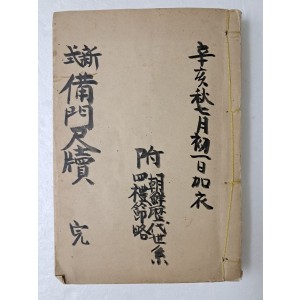 辛亥秋七月初一日加衣
附
朝鮮歷代世系
四禮節略
新式
備門尺牘 完